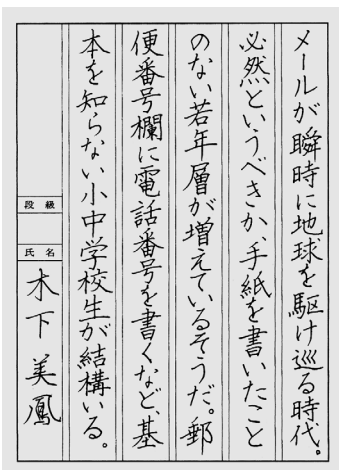 メールが瞬時に地球を駆け巡る時代。
必然というべきか、手紙を書いたこと
のない若年層が増えているそうだ。郵
便番号欄に電話番号を書くなど、基
本を知らない小中学校生が結構いる。
段級
氏名
木下美鳳